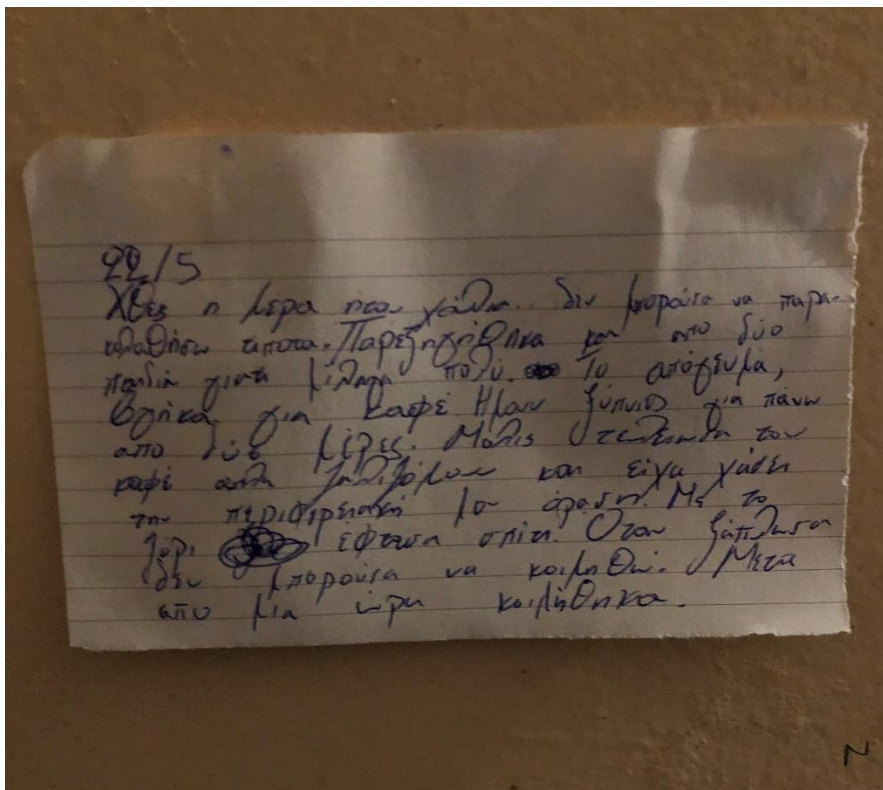 22/5
Χθες η μέρα ήταν χάλια. δεν μπορούσα να παρα-
κολαθήσω τιποτα. Παρεξηγήθηκα και απο δύο
παιδιά γιατι μίλαγα πολύ. Το απόγευμα,
βγήκα για καφέ Ημουν ξύπνιος για πάνω
απο δύο μέρες. Μολις τελειωσα τον
καφέ απλα ζαλιζόμουν και είχα χάσει
την περιφερειακή μου όραση. Με το
ζόρι έφτασα σπίτι. Οταν ξάπλωσα
δεν μπορούσα να κοιμηθώ. Μετα
απο μια ώρα κοιμήθηκα.
N